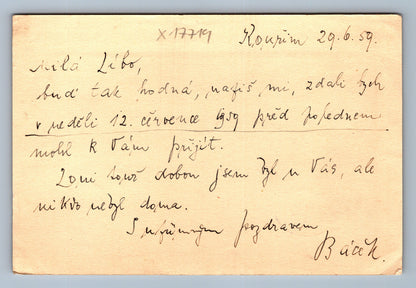 X17719
Kouřim 29.6.59.
Milá Líbo,
buď tak hodná, napiš mi, zdali bych
v neděli 12. července 1959 před polednem
mohl k Vám přijít.
Loni touž dobou jsem byl u Vás, ale
nikdo nebyl doma.
S upřímným pozdravem
Báček.